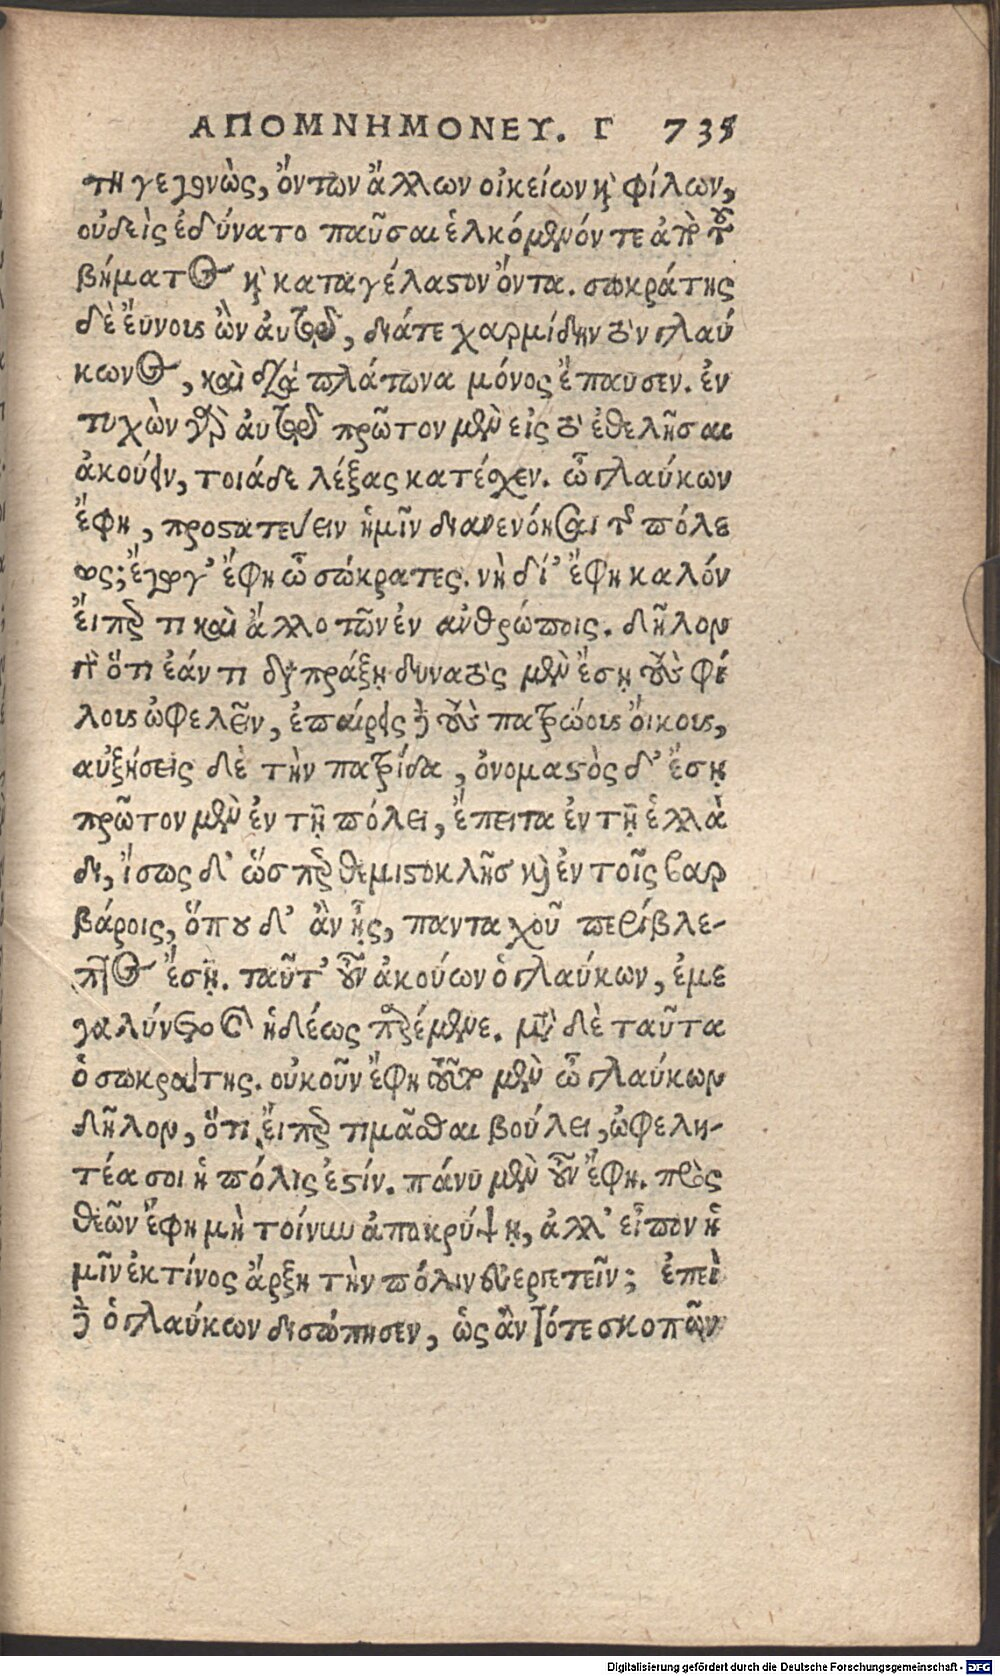 ΑΠΟΜΝΗΜΟΝΕΥ. Γ 735
τη γεγονὼς, ὄντων ἄλλων οἰκείων καὶ φίλων,
οὐδεὶς ἐδύνατο παῦσαι ἑλκόμενόν τε ἀπὸ τοῦ
βήματος καὶ καταγέλαστον ὄντα. σωκράτης
δὲ ἔυνους ὢν ἀυτῷ, διάτε χαρμίδην τὸν γλαύ
κωνος, καὶ διὰ πλάτωνα μόνος ἔπαυσεν. ἐν
τυχὼν γὰρ ἀυτῷ πρῶτον μὲν εἰς τὸ ἐθελῆσαι
ἀκούειν, τοιάδε λέξας κατέσχεν. ὦ γλαύκων
ἔφη, προστατεύειν ἡμῖν διανενόησαι τῆς πόλε
ως; ἔγωγ' ἔφη ὦ σώκρατες. νὴ δί' ἔφη καλόν
ἔιπερ τι καὶ ἄλλο τῶν ἐν ἀνθρώποις. δῆλον
γὰρ ὅτι ἐάν τι διαπράξῃ δυνατὸς μὲν ἔσῃ τοὺς φί
λους ὠφελεῖν, ἐπαίρεις δὲ τοὺς πατρώους ὄικους,
αὐξήσεις δὲ τὴν πατρίδα, ὀνομαστὸς δ' ἔσῃ
πρῶτον μὲν ἐν τῇ πόλει, ἔπειτα ἐν τῇ ἑλλὰ
δι, ἴσως δ' ὥσπερ θεμιστοκλῆς καὶ ἐν τοῖς βαρ
βάροις, ὅπου δ' ἂν ᾖς, πανταχοῦ περίβλε-
πτος ἔσῃ. ταῦτ' οὖν ἀκούων ὁ γλαύκων, ἐμε
γαλύνετο καὶ ἡδέως παρέμενε. μετὰ δὲ ταῦτα
ὁ σωκράτης. οὐκοῦν ἔφη τοῦτο μὲν ὦ γλαύκων
δῆλον, ὅτι ἔιπερ τιμᾶσθαι βούλει, ὠφελη-
τέα σοι ἡ πόλις ἐστίν. πάνυ μὲν οὖν ἔφη. πρὸς
θεῶν ἔφη μὴ τοίνυν ἀποκρύψῃ, ἀλλ' εἶπον ἡ
μῖν ἐκ τίνος ἄρξῃ τὴν πόλιν εὐεργετεῖν; ἐπεὶ
δὲ ὁ γλαύκων διεσιώπησεν, ὡς ἂν τότε σκοπῶν